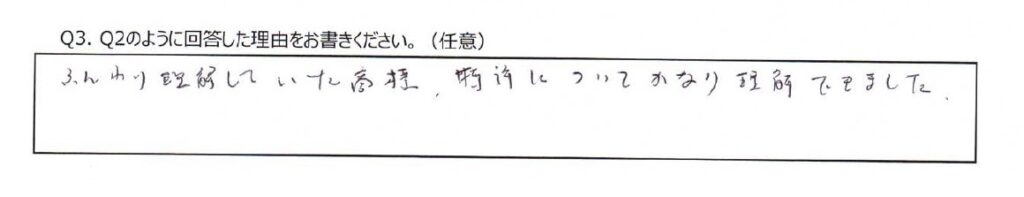 Q3. Q2のように回答した理由をお書きください。（任意）
ふんわり理解していた商標、特許についてかなり理解できました.